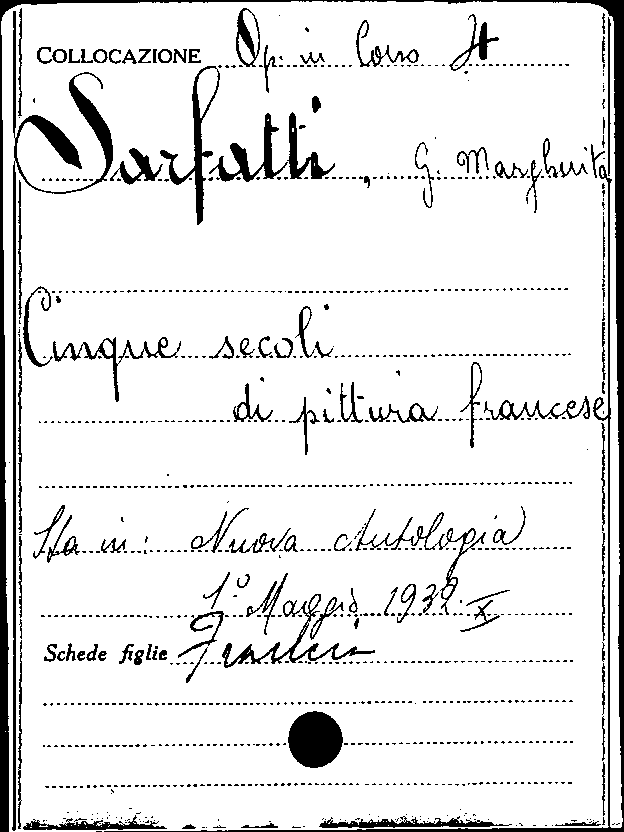 COLLOCAZIONE Op. in Corso H
Sarfatti, G. Margherita
Cinque secoli
di pittura francese
Sta in: Nuova Antologia
1° Maggio 1932 X
Schede figlie Francia